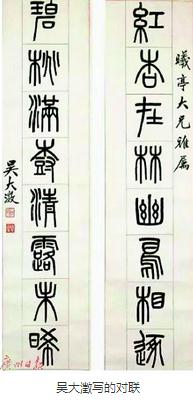 曦亭大兄雅屬
紅杏在林幽鳥相逐
碧桃滿樹清露未晞
吳大澂
广州日报
吴大澂写的对联